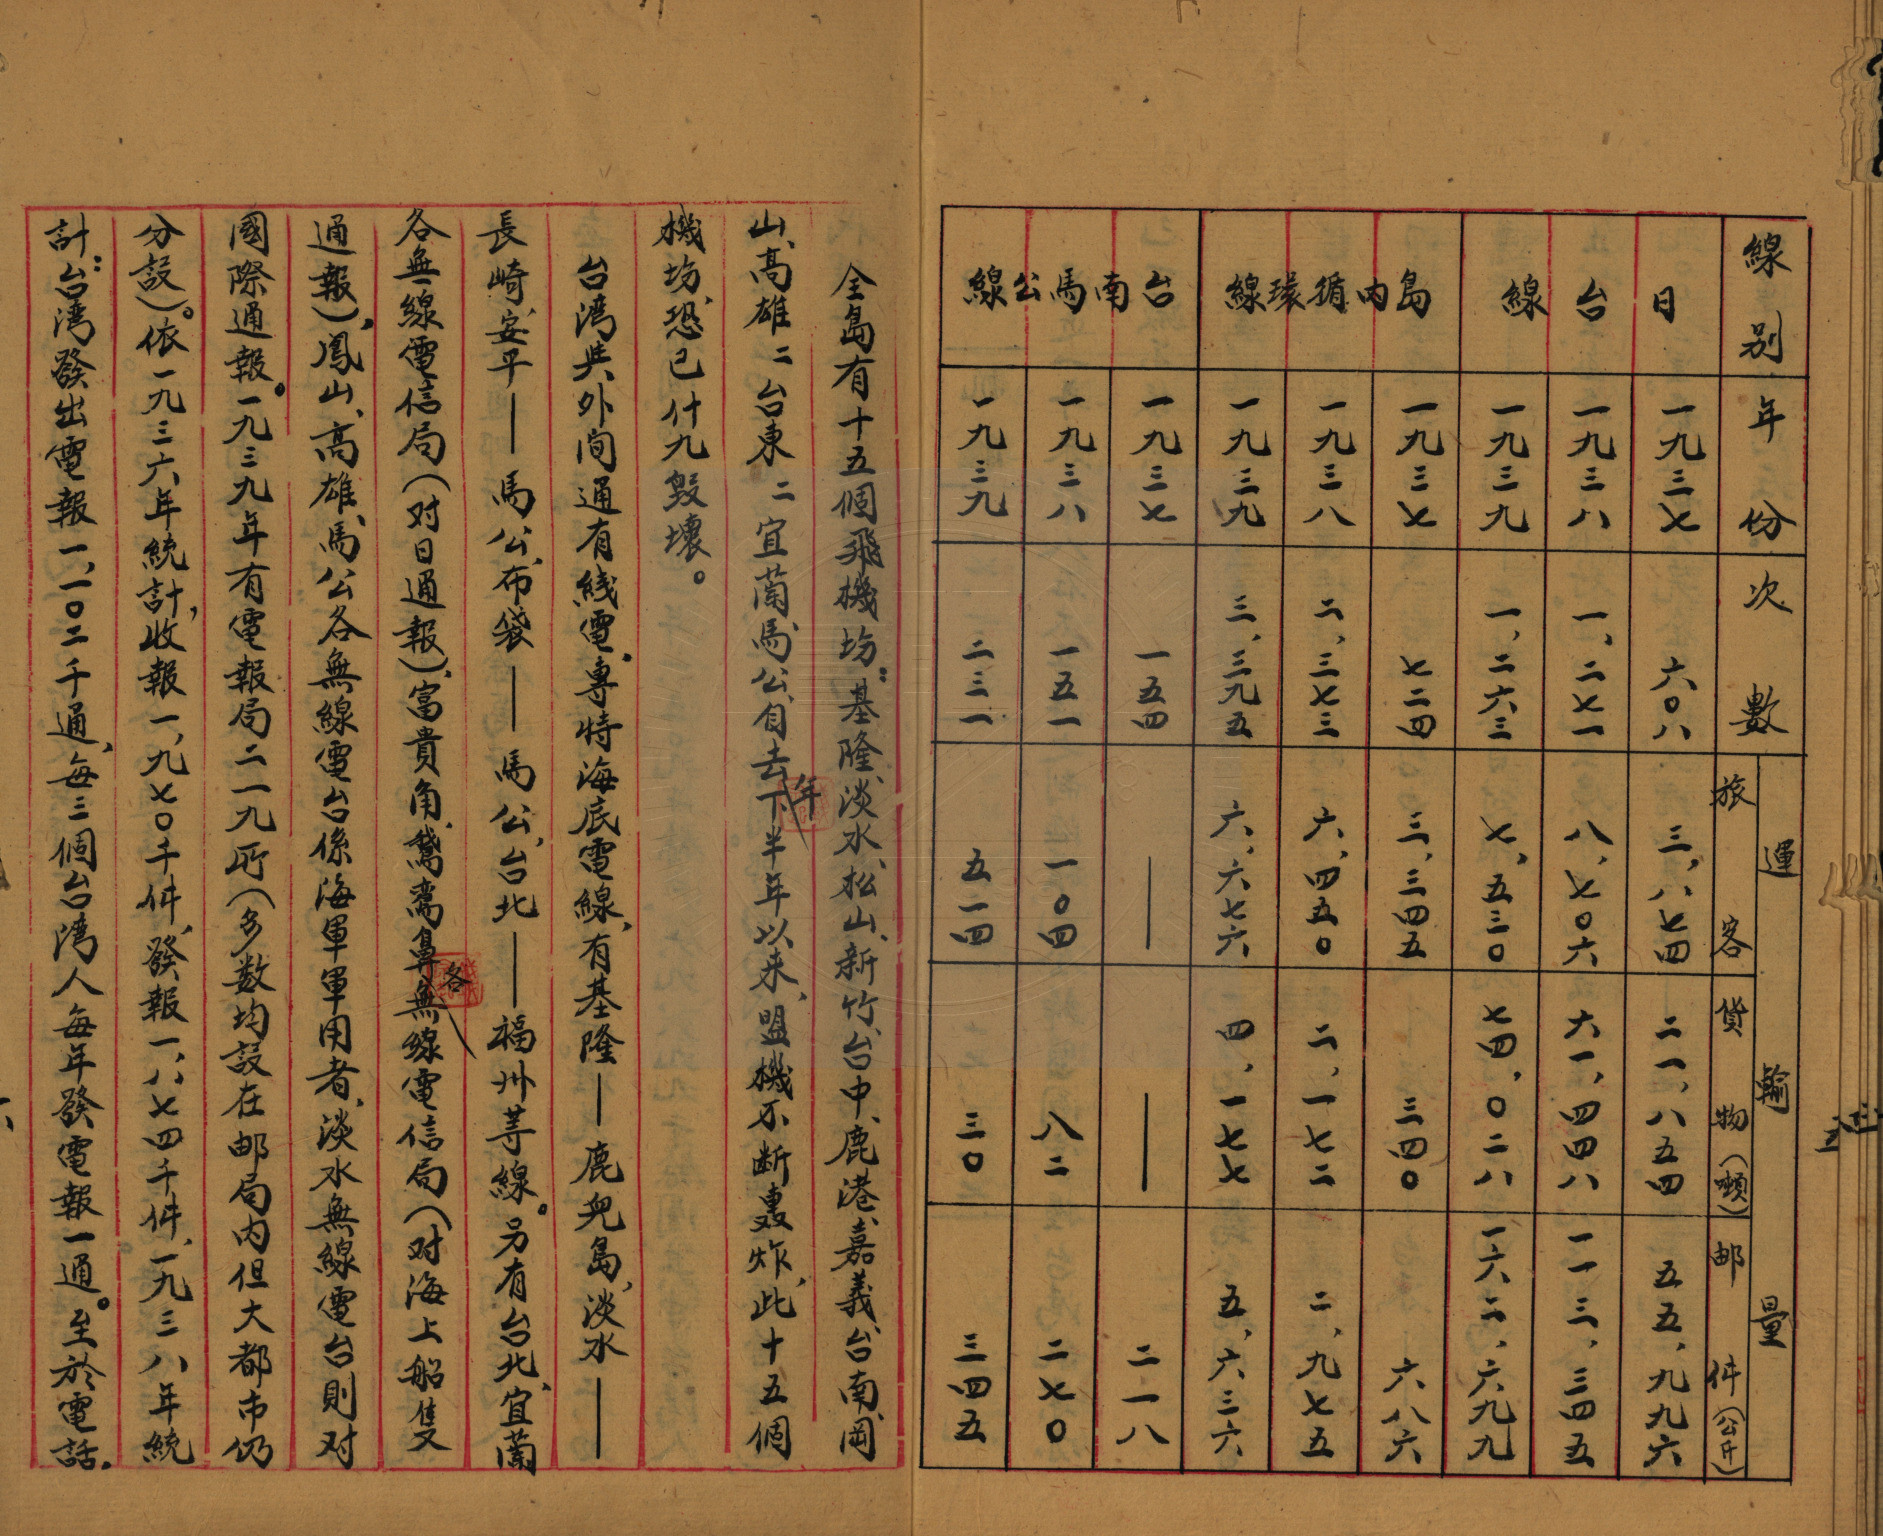 線別　年份　次數　運輸量　旅客　貨物（噸）　郵件（公斤）
日台線　一九三七　六〇八　三,八七四　二一,八五四　五五,九九六
一九三八　一,二七一　八,七〇六　六一,四四八　一一三,三四五
一九三九　一,二六三　七,五三〇　七四,〇二八　一六二,六九九
島內循環線　一九三七　七二四　三,三四五　三四〇　六八六
一九三八　二,三七三　六,四五〇　二,一七二　二,九七五
一九三九　三,三九五　六,六七六　四,一七七　五,六三六
台南馬公線　一九三七　一五四　——　——　二一八
一九三八　一五一　一〇四　八二　二七〇
一九三九　二三一　五一四　三〇　三四五
全島有十五個飛機場:基隆、淡水、松山、新竹、台中、鹿港、嘉義、台南、岡
山、高雄二、台東二、宜蘭、馬公、自去年下半年以来,盟機不断轟炸,此十五個
機場,恐已什九毀壞。
台湾與外间通有綫電,專恃海底電線,有基隆——鹿兒島,淡水——
長崎、安平——馬公、布袋——馬公、台北——福州等線。另有台北、宜蘭
各無線電信局（对日通報）,富貴角、鵞鸾鼻各無線電信局（对海上船隻
通報）,鳳山、高雄、馬公各無線電台係海軍軍用者,淡水無線電台則对
國際通報。一九三九年有電報局二一九所（多数均設在邮局内但大都市仍
分設）。依一九三六年統計,收報一,九七〇千件,發報一,八七四千件,一九三八年統
計:台湾發出電報一,一〇二千通,每三個台湾人每年發電報一通。至於電話,